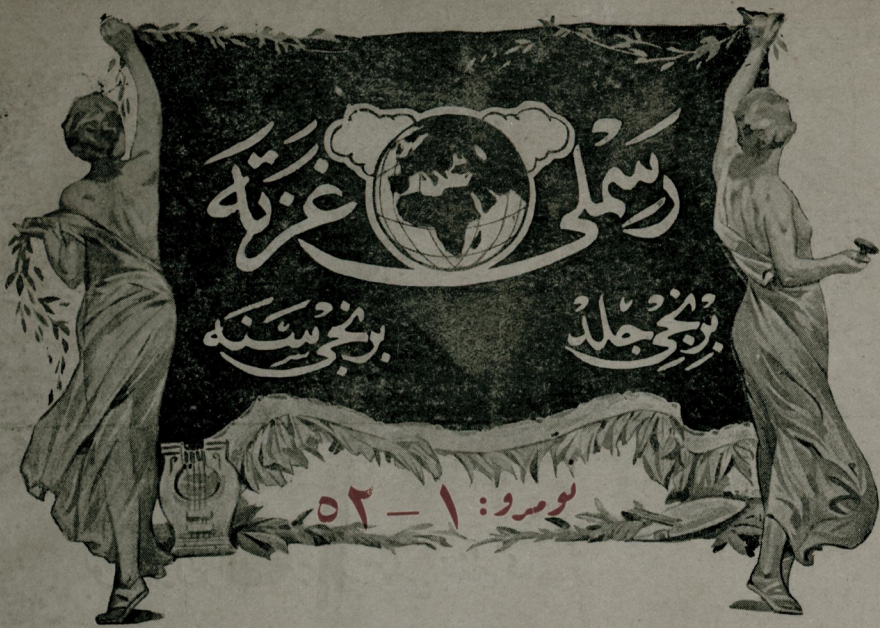 رسملی غزته
برنجی جلد
برنجی سنه
نومرو: ١ – ٥٢